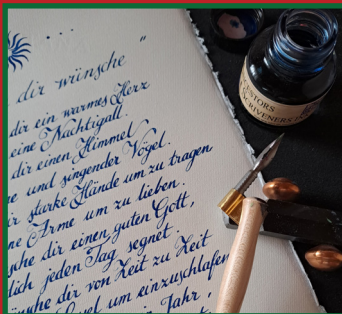 dir wünsche "
dir ein warmes Herz
eine Nachtigall.
dir einen Himmel
und singender Vögel.
starke Hände um zu tragen
ne Arme um zu lieben.
sche dir einen guten Gott,
dich jeden Tag segnet.
dir von Zeit zu Zeit
um einzuschlafen
Jahr,
ESTORS
SCRIVENERS